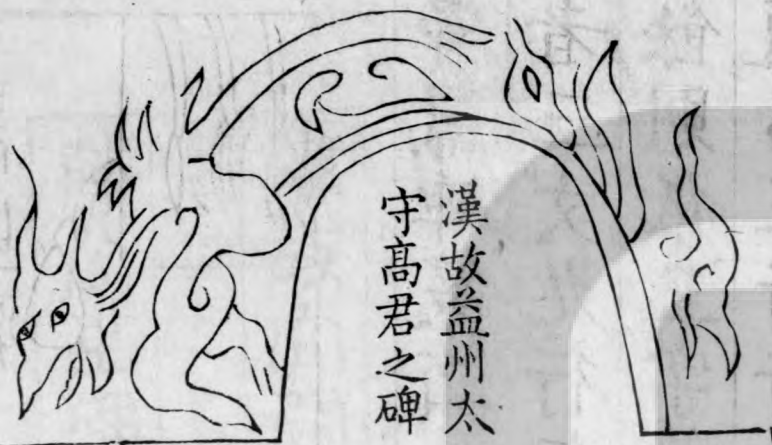 漢故益州太
守高君之碑